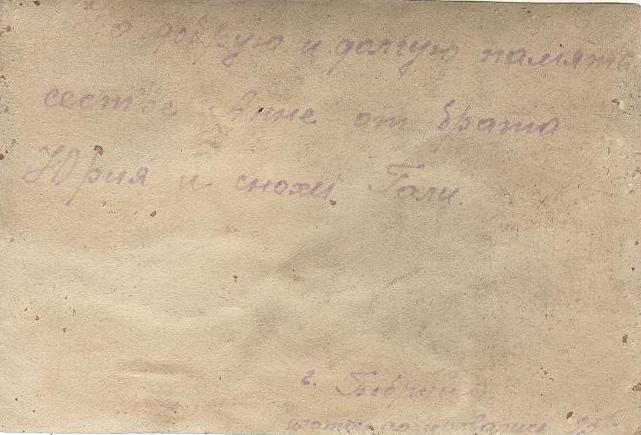 На добрую и долгую память
сестре Анне от брата
Юрия и снохи Гали
г.